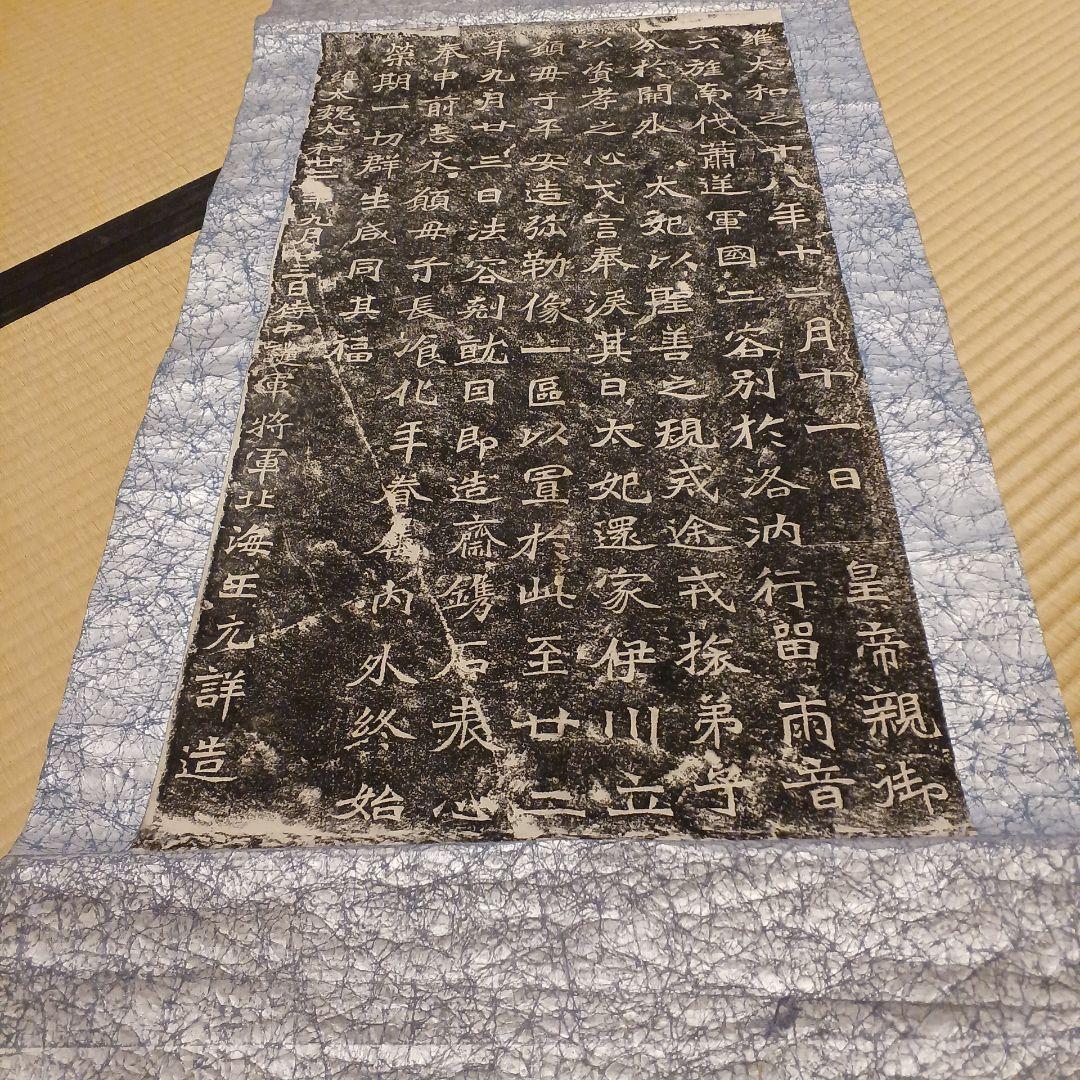 維太和之十八年十二月十一日皇帝親御
六旌南伐蕭逆軍國二容別於洛汭行留兩音
分於闕外太妃以聖善之規戒途戎旅弟子
以資孝之心戈言奉淚其日太妃還家伊川立
願毋子平安造弥勒像一區以置於此至廿二
年九月廿三日法容剋就因即造齋鐫石表心
奉申前志永願毋子長飡化年眷屬內外終始
榮期一切群生咸同其福
維大魏太和廿二年九月廿三日侍中護軍將軍北海王元詳造